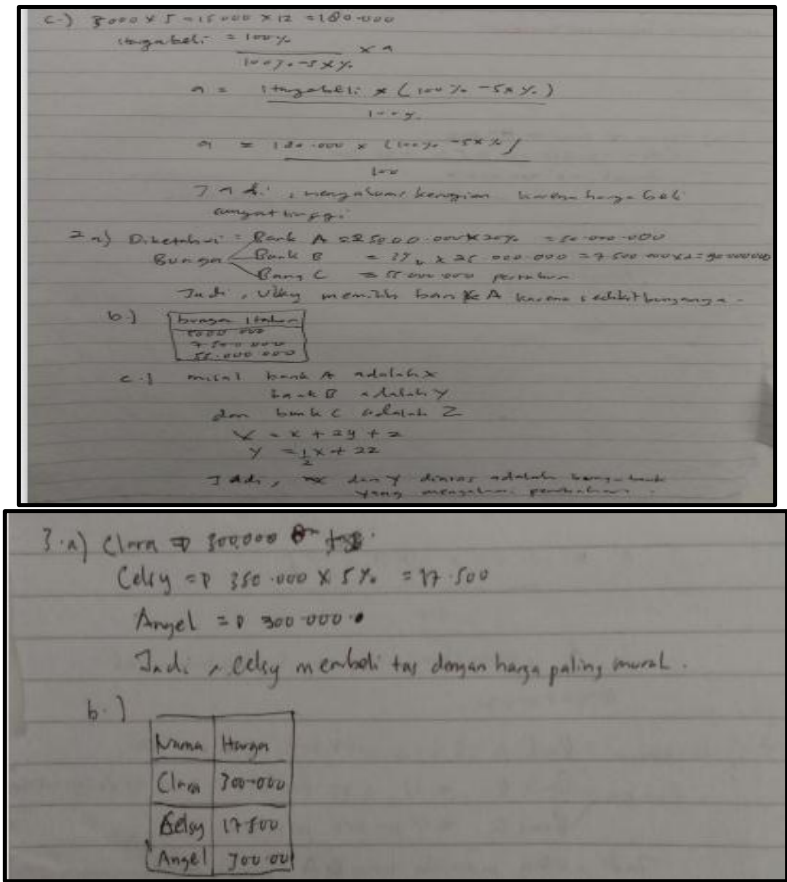 c.) 3000 x 5 = 15000 x 12 = 180.000
Harga beli = 100%
100% - 5x% x n
n = Harga beli x (100% - 5x%)
100%
n = 180.000 x (100% - 5x%)
100
Jadi, mengalami kerugian karena harga beli
sangat tinggi
2 a) Diketahui = Bank A = 25000.000 x 20% = 50.000.000
Bunga Bank B = x 25 000.000 = 7 500 000 x 2 = 90000000
Bang C = 55 000 000 pertahun
Jadi, Ulky memilih bank A karena sedikit bunganya.
b.) bunga 1 tahun
5000 000
7 500.000
55.000.000
c.) misal bank A adalah x
bank B adalah y
dan bank C adalah Z
x = x + 2y + z
y = 1/2 x + 2z
Jadi, x dan y diatas adalah bunga bank
yang mengalami perubahan.
3.a) Clara => 300.000
Celsy => 350.000 x 5% = 17.500
Angel => 300.000
Jadi, Celsy membeli tas dengan harga paling murah.
b.)
Nama Harga
Clara 300.000
Celsy 17 500
Angel 300.00